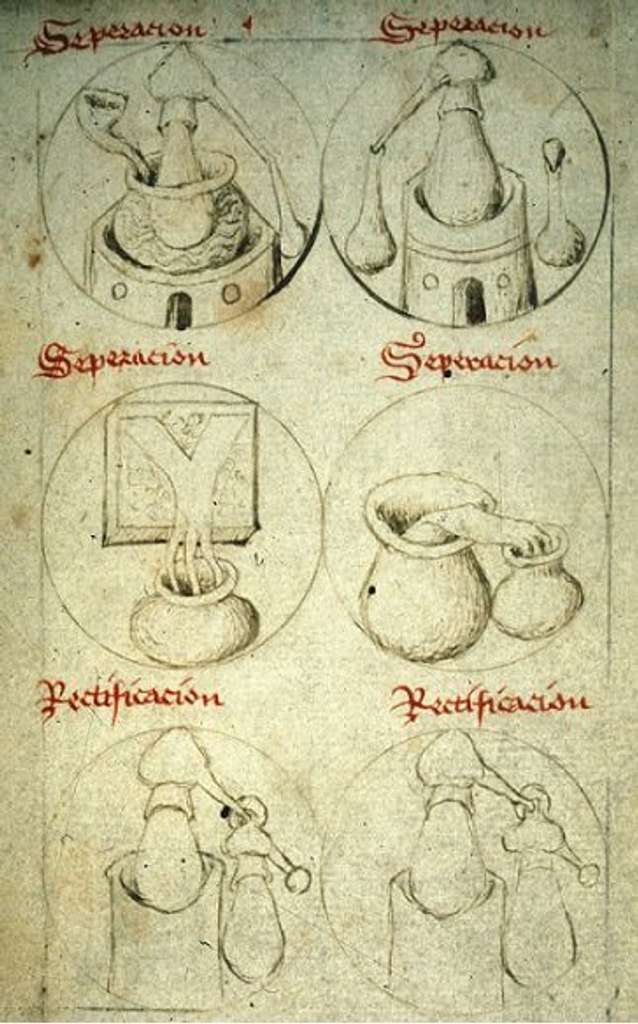 Seperacion
Seperacion
Seperacion
Seperacion
Rectificacion
Rectificacion